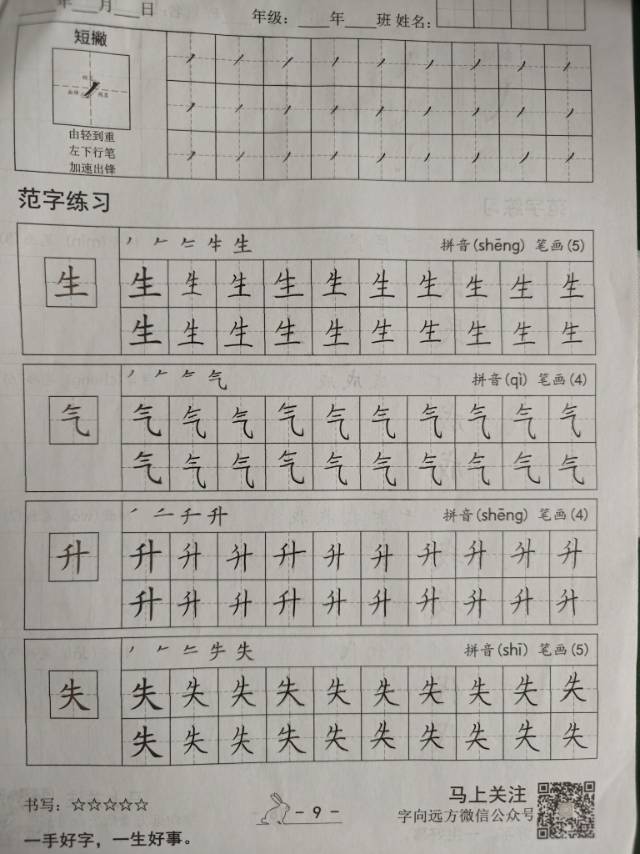 年 月 日 年级： 年 班 姓名：
短撇
由轻到重
左下行笔
加速出锋
范字练习
生 拼音(shēng) 笔画(5)
生 生 生 生 生 生 生 生 生 生 生
生 生 生 生 生 生 生 生 生 生
气 拼音(qì) 笔画(4)
气 气 气 气 气 气 气 气 气 气 气
气 气 气 气 气 气 气 气 气 气
升 拼音(shēng) 笔画(4)
升 升 升 升 升 升 升 升 升 升 升
升 升 升 升 升 升 升 升 升 升
失 拼音(shī) 笔画(5)
失 失 失 失 失 失 失 失 失 失 失
失 失 失 失 失 失 失 失 失 失
书写：☆☆☆☆☆
一手好字，一生好事。
- 9 -
马上关注
字向远方微信公众号